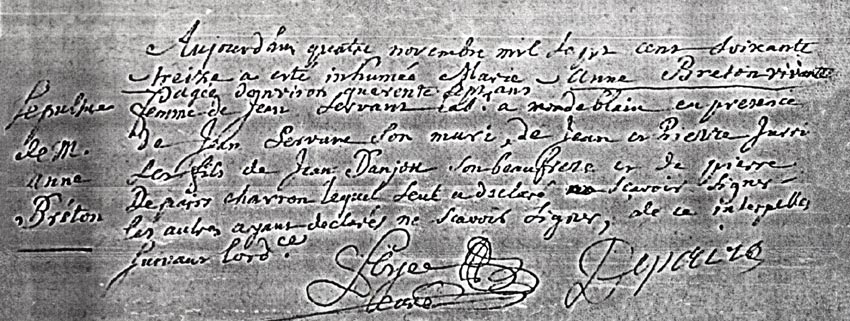 Aujourdhui quatre novembre mil Sept cent Soixante
treize a eté inhumée Marie Anne Breton vivante
Dagée d'anviron quarente Sept ans
femme de Jean Servant a en presence
de Jean Servant Son mari, de Jean et Pierre
Les fils de Jean Danjon Son beaufrere et de pierre
charron lequel Seul a declaré Scavoir Signer
les autres ayant declarés ne Scavoir Signer, de ce interpellés
Suivant lord.ce
Sepulture
de M.
anne
Breton